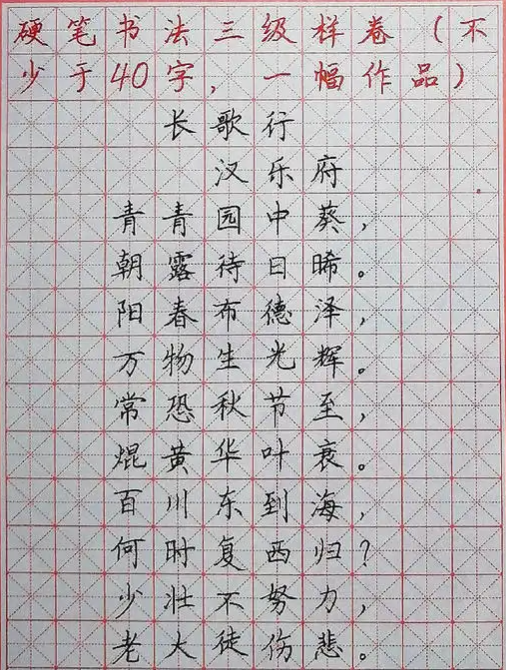 硬笔书法三级样卷（不
少于40字，一幅作品）
长歌行
汉乐府
青青园中葵，
朝露待日晞。
阳春布德泽，
万物生光辉。
常恐秋节至，
焜黄华叶衰。
百川东到海，
何时复西归？
少壮不努力，
老大徒伤悲。